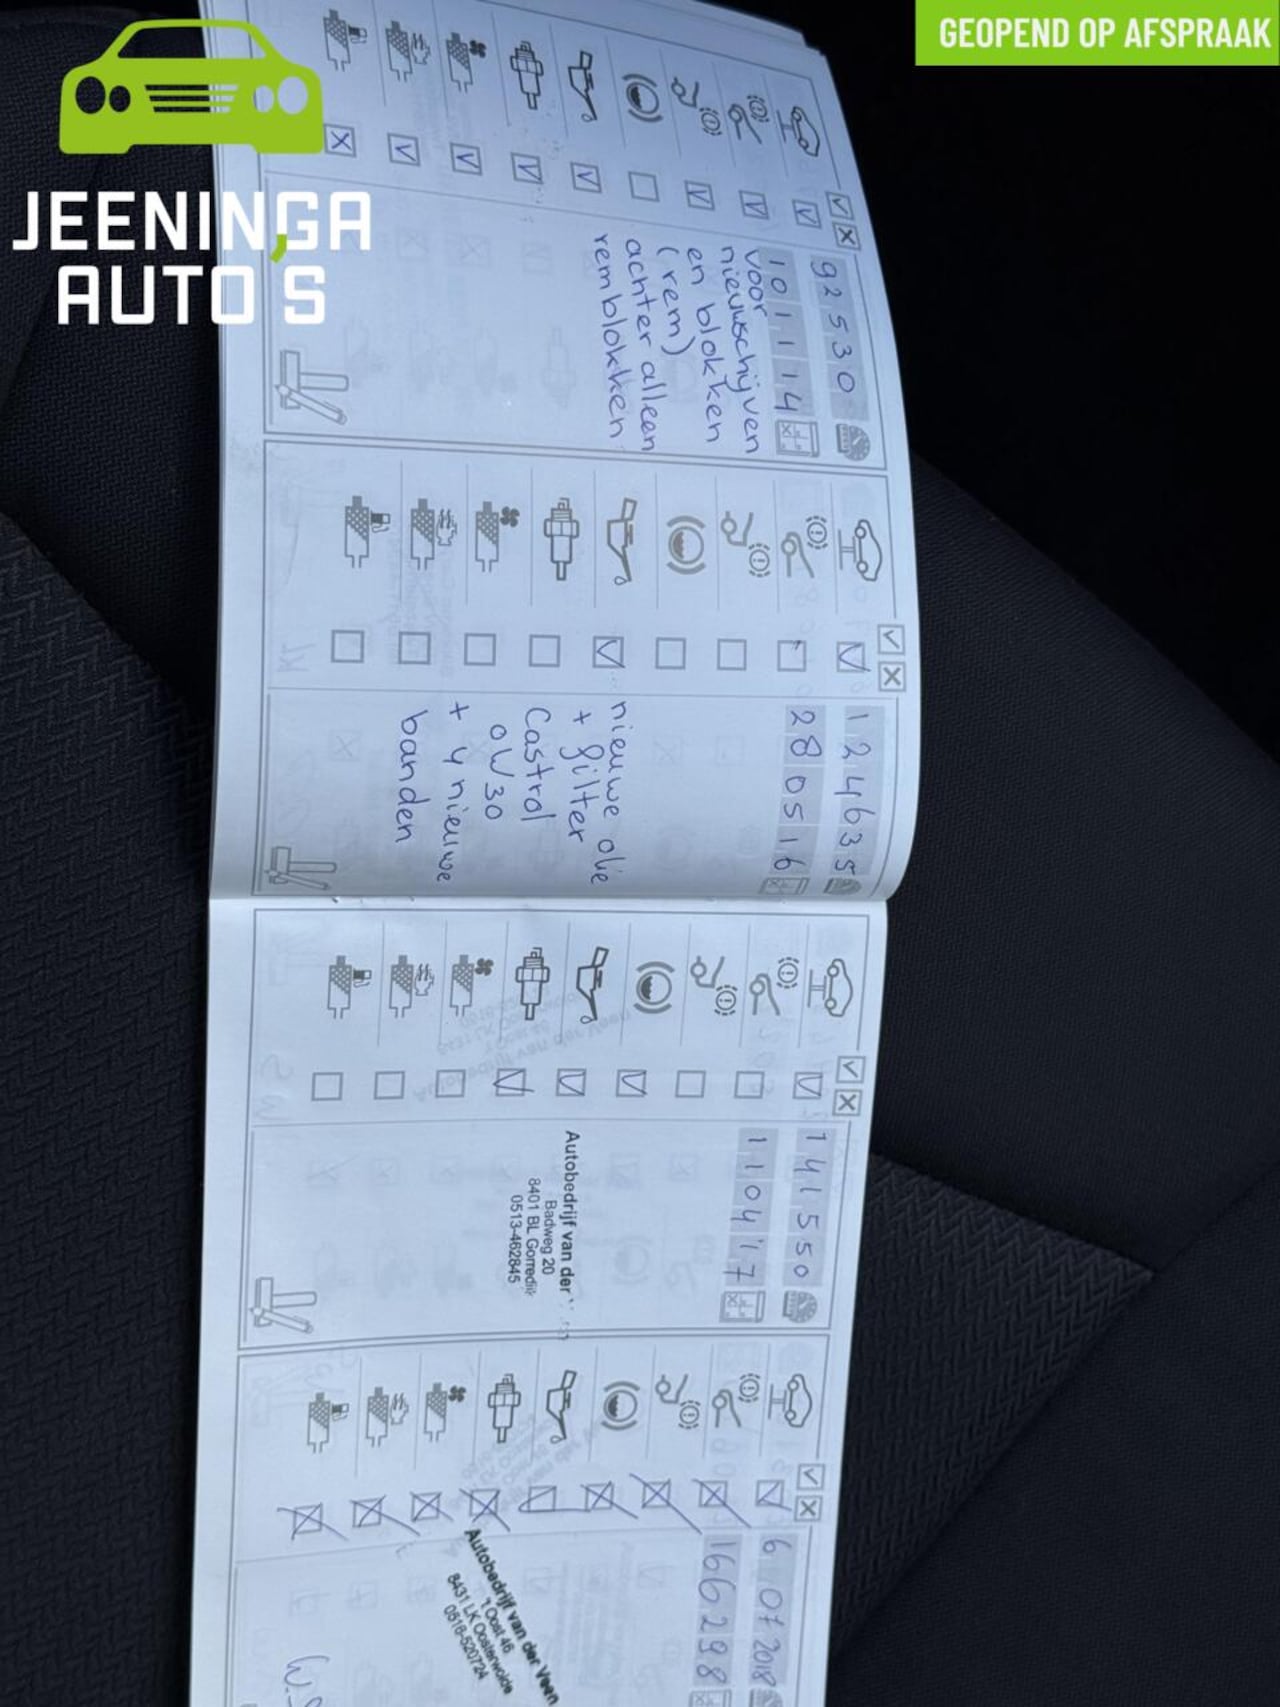 GEOPEND OP AFSPRAAK
JEENINGA
AUTO'S
92530
101114
voor
nieuwschijven
en blokken
(rem)
achter alleen
remblokken
124635
280516
nieuwe olie
+ filter
Castrol
0W30
+ 4 nieuwe
banden
141550
110417
Autobedrijf van der
Badweg 20
8401 BL Gorredijk
0513-462845
6 07 2018
166298
Autobedrijf van der Veen
't Oost 46
8431 LK Oosterwolde
0516-520724